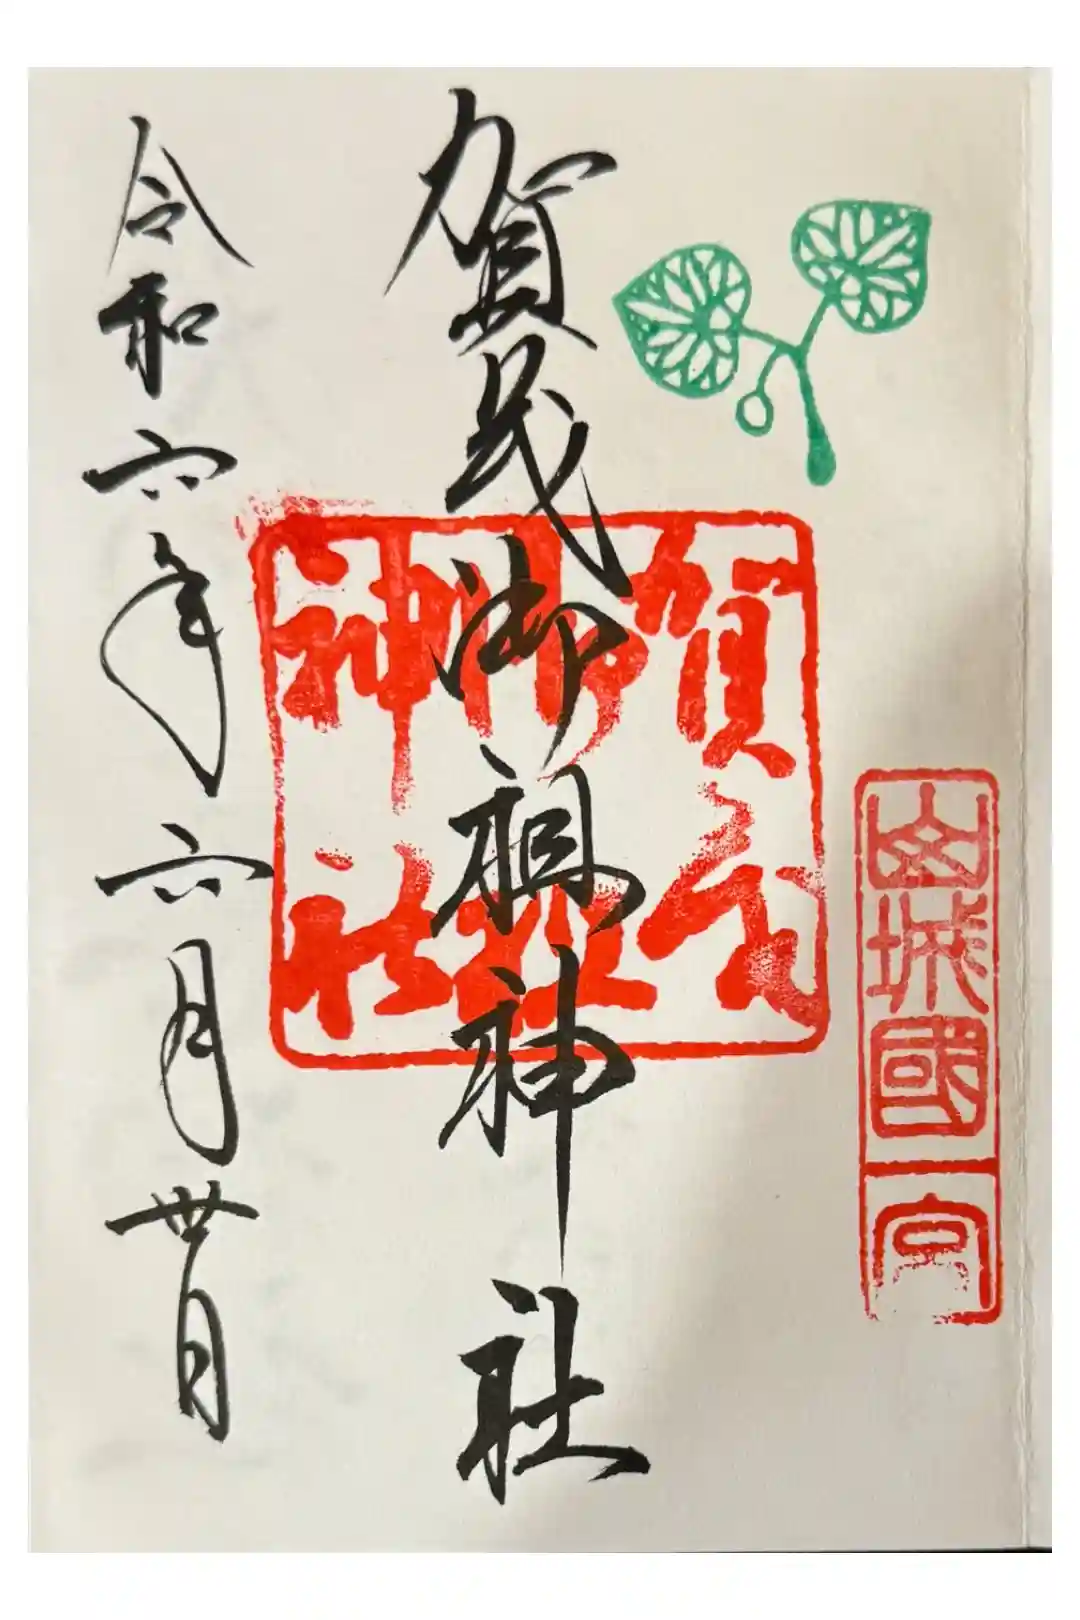 山城國一宮
賀茂御祖神社
賀茂
御祖
神社
令和六年六月卅日